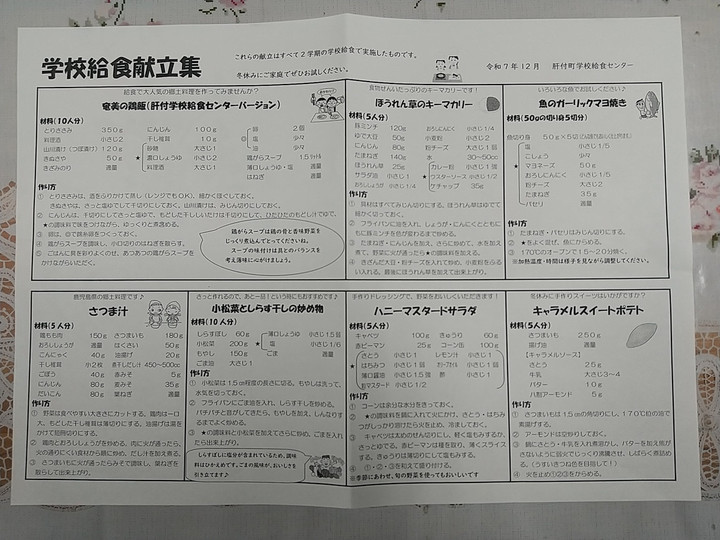 学校給食献立集
これらの献立はすべて２学期の学校給食で実施したものです。
冬休みにご家庭でぜひお試しください。
令和７年１２月　肝付町学校給食センター
給食で大人気の郷土料理を作ってみませんか？
奄美の鶏飯(肝付学校給食センターバージョン)
材料(１０人分)
とりささみ　３５０ｇ　にんじん　１００ｇ　卵　２個
料理酒　小さじ２　干し椎茸　１０ｇ　塩　少々
山川漬け（つぼ漬け）１２０ｇ　砂糖　大さじ１　酢　少々
きぬさや　５０ｇ　★　濃口しょうゆ　小さじ２　鶏がらスープ　１.５㍑
きざみのり　適量　料理酒　小さじ１　薄口しょうゆ・塩　適量
はねぎ　適量
作り方
①　とりささみは、酒をふりかけて蒸し（レンジでもＯＫ）、細かくほぐしておく。
きぬさやは、さっと塩ゆでして千切りにしておく。山川漬けは、みじん切りにしておく。
②　にんじんは、千切りにしてさっと塩ゆで、もどした干ししいたけは千切りにして、ひたひたのもどし汁でゆで、
★の調味料で味をつけながら、ゆっくりと煮含める。
③
④　鶏がらスープを調味し、小口切りのはねぎを散らす。
⑤　ごはんに具を彩りよくのせ、あつあつの鶏がらスープを
かけながらいただく。
鶏がらスープは鶏の骨と香味野菜を
じっくり煮込んでとってくださいね。
スープの味付けは具とのバランスを
考え薄味に心がけましょう。
食物せんいたっぷりのキーマカリーです！
ほうれん草のキーマカリー
材料(５人分)
豚ミンチ　１２０ｇ　おろしにんにく　小さじ１/４
ゆで大豆　５０ｇ　小麦粉　小さじ２
にんじん　８０ｇ　粉チーズ　大さじ１
たまねぎ　１４０ｇ　水　３０～５０cc
ほうれん草　２５ｇ　カレー粉　小さじ１/２
サラダ油　小さじ１　★　ウスターソース　小さじ１/２
おろししょうが　小さじ１/４　ケチャップ　３５ｇ
作り方
①　具材はすべてみじん切りにする。ほうれん草はゆでて
細かく切っておく。
②　フライパンに油を入れ、しょうが・にんにくとともに
もに豚ミンチを色が変わるまで炒める。
③　たまねぎ・にんじんを加え、さらに炒め、水を加え
煮て、野菜に火が通ったら★の調味料を加える。
④　きざんだ大豆・粉チーズを入れて炒め、小麦粉をふる
いいれる。最後にほうれん草を加えて出来上がり。
いろいろな魚でお試しください。
魚のガーリックマヨ焼き
材料(５０ｇの切り身５切分)
魚切り身　５０ｇ×５切
塩　小さじ１/５
こしょう　少々
★　マヨネーズ　５０ｇ
おろしにんにく　小さじ１/５
粉チーズ　大さじ２
たまねぎ　３.５ｇ
パセリ　適量
作り方
①　たまねぎ・パセリはみじん切りにする。
②　★をよく混ぜ、魚にからめる。
③　１７０℃のオーブンで１５～２０分焼く。
※加熱温度・時間は様子を見ながら調整してください。
鹿児島県の郷土料理です♪
さつま汁
材料(５人分)
鶏もも肉　１５０ｇ　さつまいも　１８０ｇ
おろししょうが　適量　はくさい　５０ｇ
こんにゃく　４０ｇ　油揚げ　２０ｇ
干し椎茸　小２枚　煮干しだし汁　４５０～５００cc
ごぼう　４０ｇ　赤みそ　５ｇ
にんじん　８０ｇ　麦みそ　３５ｇ
だいこん　８０ｇ　葉ねぎ　５ｇ
作り方
①　野菜は食べやすい大きさにカットする。鶏肉は一口
大、もどした干し椎茸は薄切りにする。油揚げは湯を
かけて短冊切りにする。
②　鶏肉とおろししょうがを炒める。肉に火が通ったら、
火の通りにくい食材から順に炒め、だし汁を加え煮る。
③　さつまいもに火が通ったらみそで調味し、葉ねぎを
散らして出来上がり。
さっと作れるので、あと一品！という時にもおすすめです♪
小松菜としらす干しの炒め物
材料(１０人分)
しらすぼし　６０ｇ　薄口しょうゆ　小さじ１.５
小松菜　２００ｇ　★　塩　小さじ１/６
もやし　１５０ｇ　ごま　適量
ごま油　大さじ１
作り方
①　小松菜は１.５㎝程度の長さに切る。もやしは洗って、
水気を切っておく。
②　フライパンにごま油を入れ、しらす干しを炒める。
パチパチと音がしてきたら、もやしを加え、しんなりす
るまでよく炒める。
③　★の調味料と小松菜を加えてさらに炒め、ごまを入れ
たら出来上がり。
しらすぼしに塩分が含まれているため、調味
料はひかえめです。ごまの風味が、おいしさを
引き立てます♪
手作りドレッシングで、野菜をおいしくいただきます！
ハニーマスタードサラダ
材料(５人分)
キャベツ　１００ｇ　きゅうり　６０ｇ
赤ピーマン　２５ｇ　コーン缶　１００ｇ
さとう　小さじ１/２　レモン汁　小さじ１
★　はちみつ　小さじ１　小さじ１
薄口醤油　小さじ１.５　酢　小さじ１
粒マスタード　小さじ１/２
作り方
①　コーンは余分な水分をきっておく。
②　★の調味料を鍋に入れて火にかけ、さとう・はちみ
つがしっかり溶けたら火を止め、冷ましておく。
③　キャベツは太めのせん切りにし、軽く塩もみするか、
さっとゆでる。赤ピーマンは種を取り、薄くスライス
する。きゅうりは薄切りにして塩もみする。
④　①・②・③を和えて盛り付ける。
※季節にあわせ、旬の野菜を使ってもおいしいです
冬休みに手作りスイーツはいかがですか？
キャラメルスイートポテト
材料(５人分)
さつまいも　２５０ｇ
揚げ油　適量
【キャラメルソース】
さとう　２５ｇ
牛乳　大さじ３～４
バター　１０ｇ
八割アーモンド　５ｇ
作り方
①　さつまいもは１.５㎝の角切りにし、１７０℃の油で
素揚げする。
②　アーモンドは空炒りしておく。
③　鍋にさとう・牛乳を入れ煮溶かし、バターを加え焦が
さないように弱火でじっくり沸騰させ、しばらく煮詰め
る。（うすいきつね色を目安に！）
④　火を止め①②③をからめる。